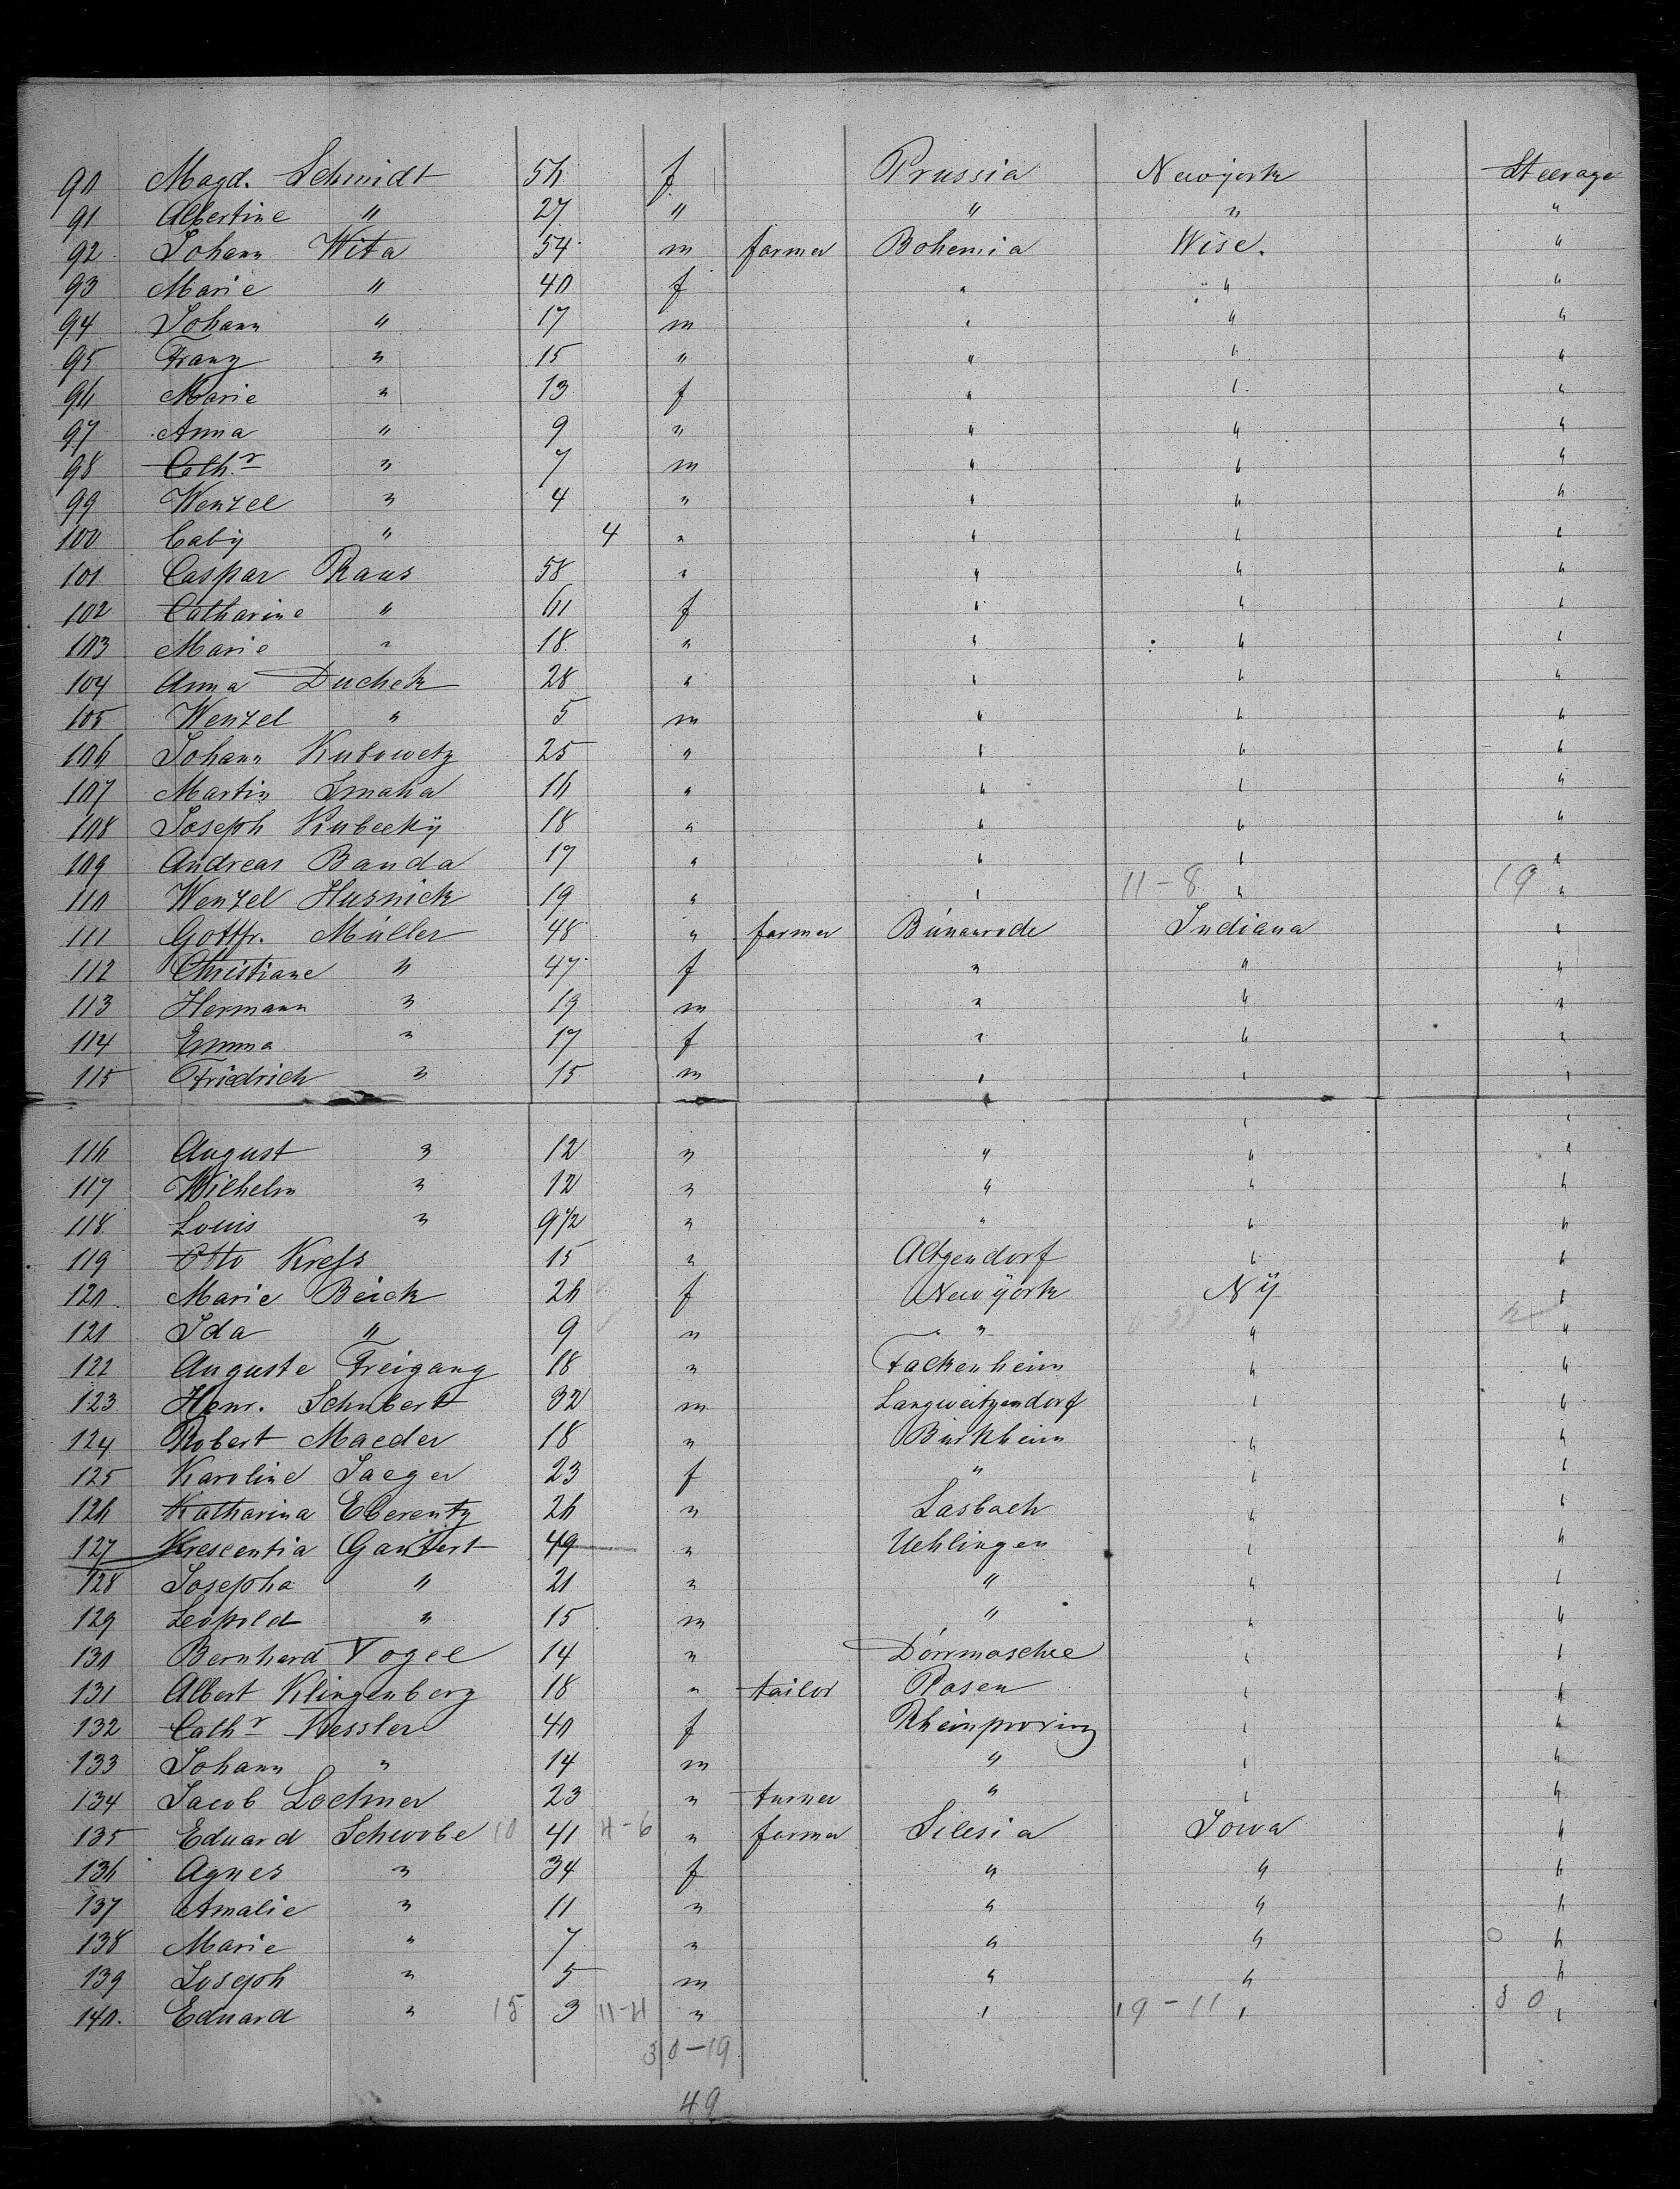 90 Magd. Schmidt 56 f Prussia Newyork Steerage
91 Albertine " 27 " " " "
92 Johann Wita 54 m farmer Bohemia Wisc. "
93 Marie " 40 f " " "
94 Johann " 17 m " " "
95 Franz " 15 " " " "
96 Marie " 13 f " " "
97 Anna " 9 " " " "
98 Cathr " 7 m " " "
99 Wenzel " 4 " " " "
100 baby " 4 " " " "
101 Caspar Raus 58 " " " "
102 Catharine " 61 f " " "
103 Marie " 18 " " " "
104 Anna Duchek 28 " " " "
105 Wenzel " 5 m " " "
106 Johann Kubowetz 25 " " " "
107 Martin Smaha 16 " " " "
108 Joseph Kubecky 18 " " " "
109 Andreas Banda 17 " " " "
110 Wenzel Husnick 19 " " 11-8 " 19 "
111 Gottfr. Müller 48 " farmer Indiana "
112 Christiane " 47 f " " "
113 Hermann " 19 m " " "
114 Emma " 17 f " " "
115 Friedrich " 15 m " " "
" "
116 August " 12 " " " "
117 Wilhelm " 12 " " " "
118 Louis " 9 1/2 " " " "
119 Otto Kress 15 " Altgendorf " "
120 Marie Beick 26 f Newyork Ny "
121 Ida " 9 " " " "
122 Auguste Freigang 18 " Fackenheim " "
123 Henr. Schubert 32 m Langweitzendorf " "
124 Robert Maeder 18 " Burkheim " "
125 Karoline Jaeger 23 f " " "
126 Katharina Eberentz 26 " Sasbach " "
127 Krescentia Gantert 49 " Uehlingen " "
128 Josepha " 21 " " " "
129 Leopold " 15 m " " "
130 Bernhard Vogel 14 " Dörrmoschel " "
131 Albert Klingenberg 18 " tailor Posen " "
132 Cathr Kessler 40 f Rheinprovinz " "
133 Johann " 14 m " " "
134 Jacob Lochner 23 " turner " " "
135 Eduard Schwobe 10 41 4-6 " farmer Silesia Iowa "
136 Agnes " 34 f " " "
137 Amalie " 11 " " " "
138 Marie " 7 " " " "
139 Joseph " 5 m " " "
140. Eduard " 15 3 11-4 " " 19-11 " 30 "
30-19
49